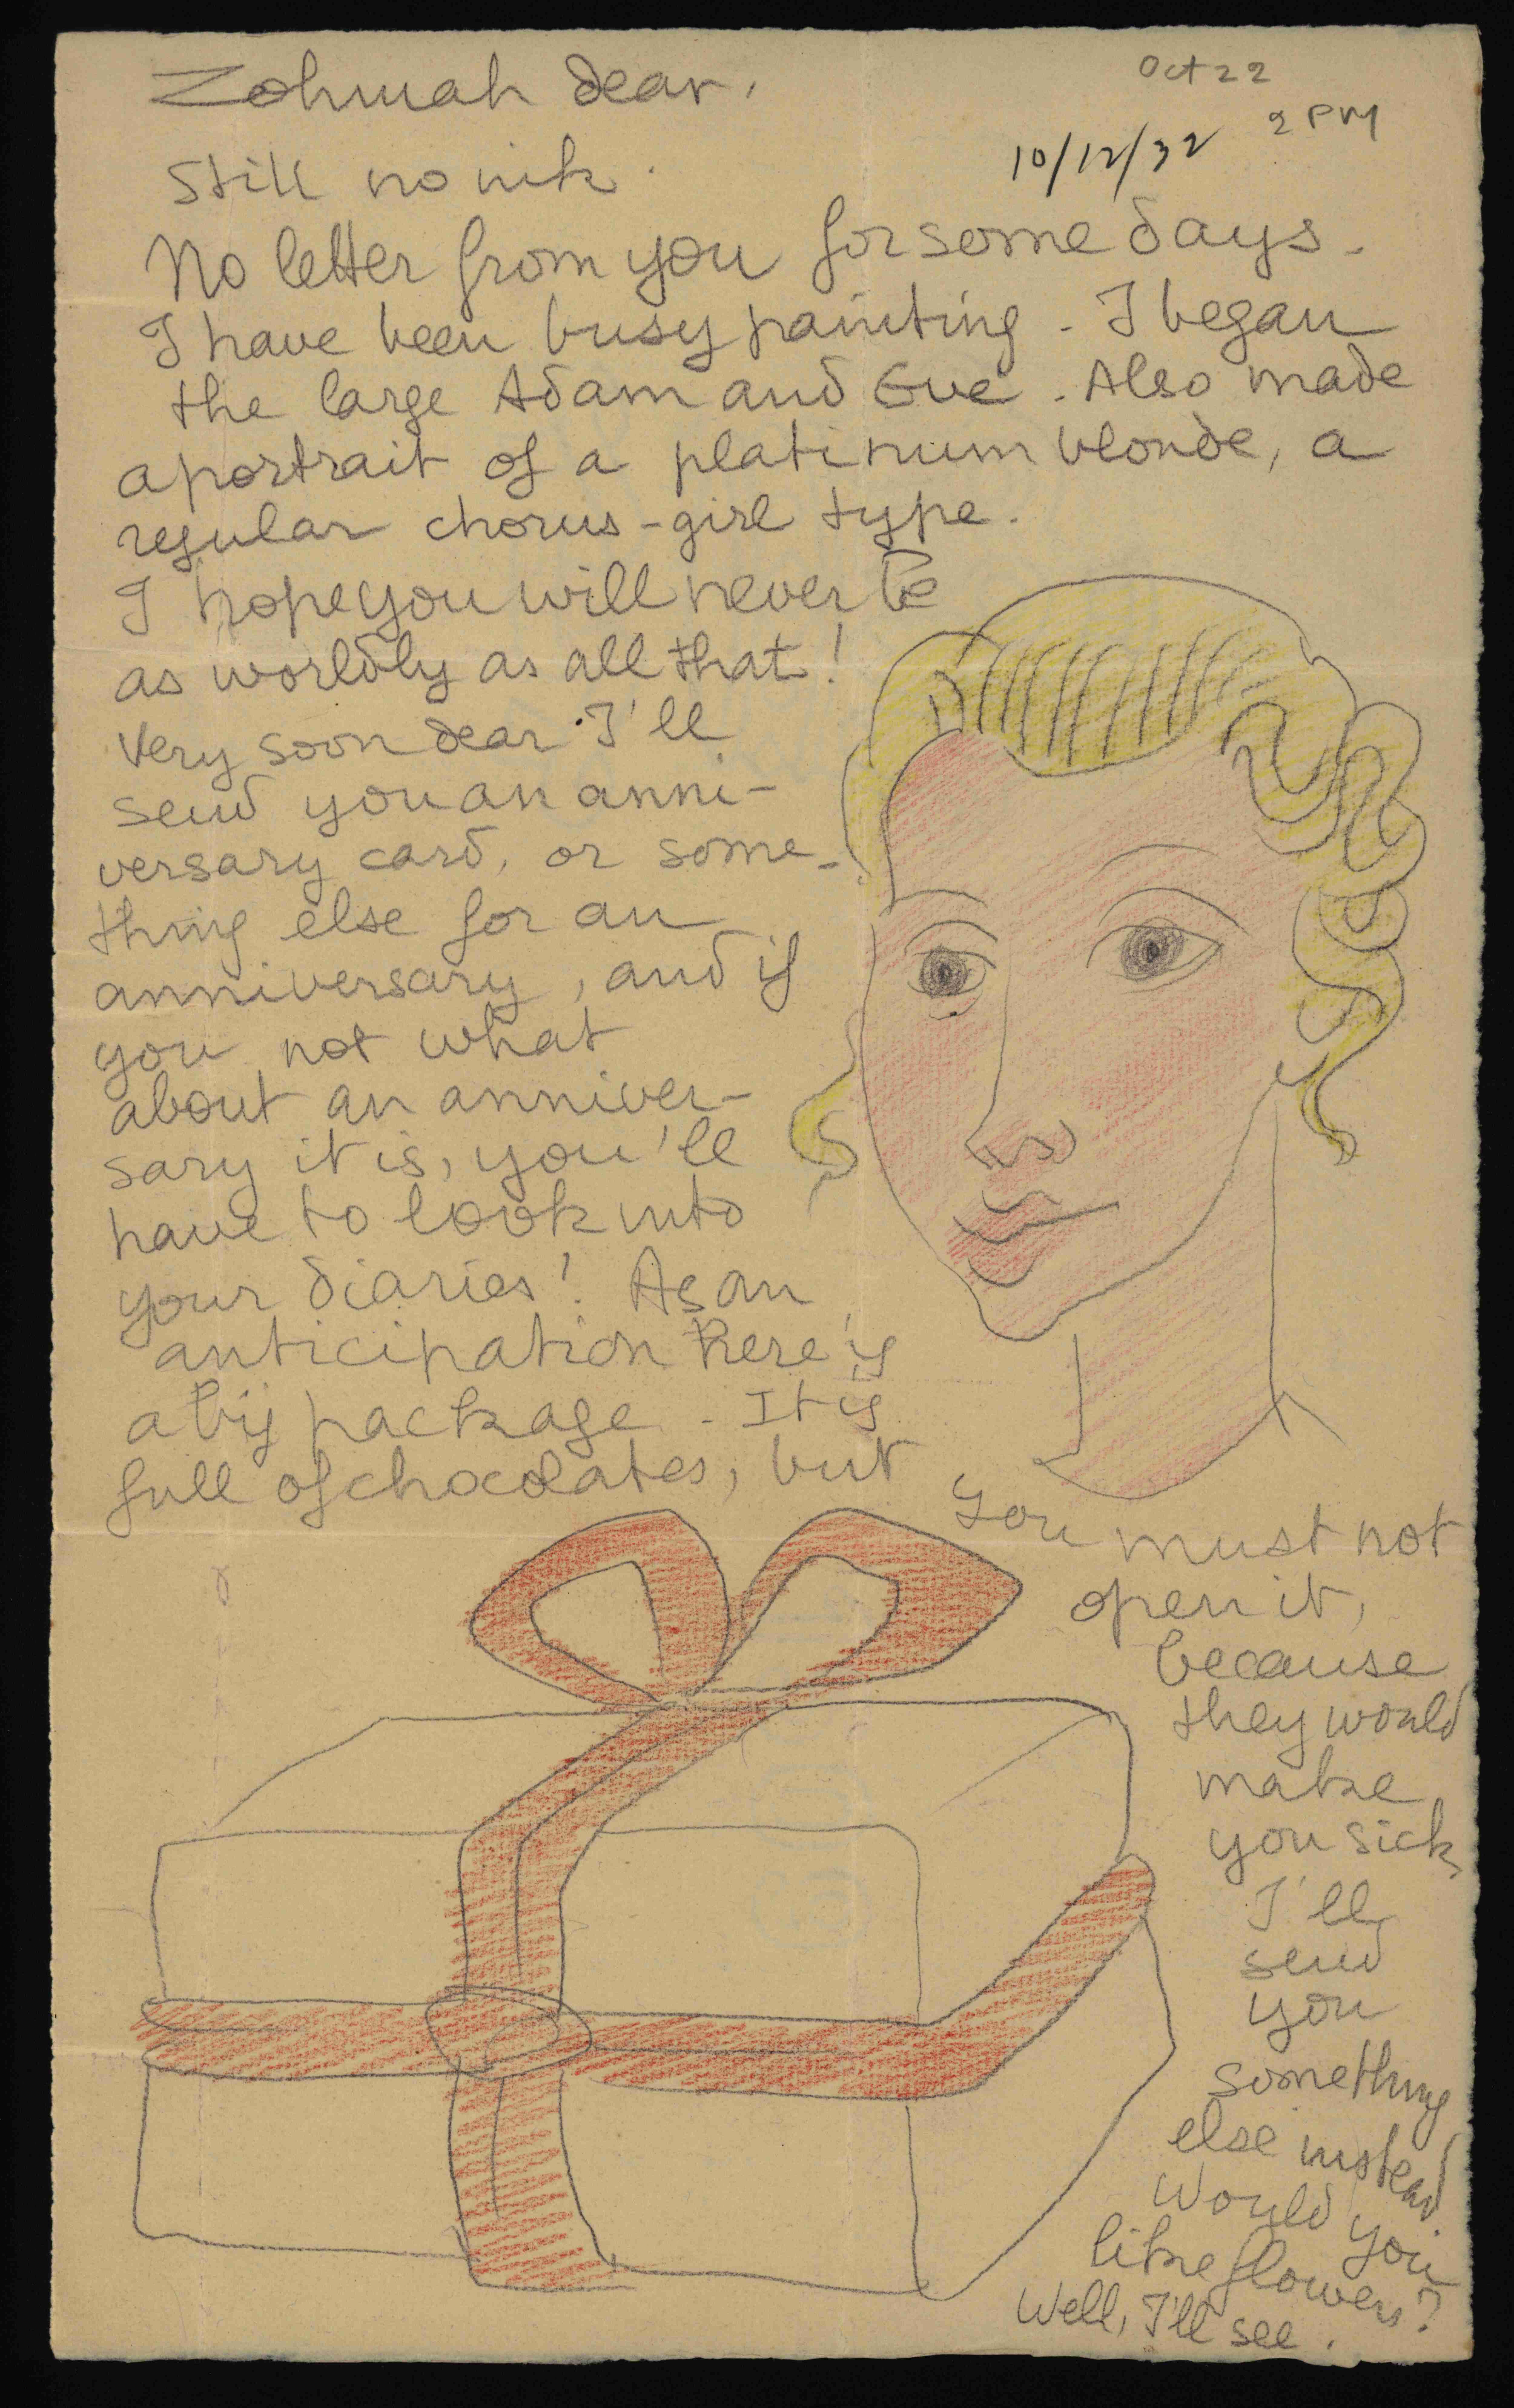 Zohmah dear,
Oct 22
2 PM
10/12/32
Still no ink.
No letter from you for some days.
I have been busy painting. I began
the large Adam and Eve. Also made
a portrait of a platinum blonde, a
regular chorus-girl type.
I hope you will never be
as worldly as all that!
Very soon dear I'll
send you an anni-
versary card, or some-
thing else for an
anniversary, and if
you not what
about an anniver-
sary it is, you'll
have to look into
your diaries! As an
anticipation here is
a big package. It is
full of chocolates, but
you must not
open it,
because
they would
make
you sick,
I'll
send
you
something
else instead.
Would you
like flowers?
Well, I'll see.